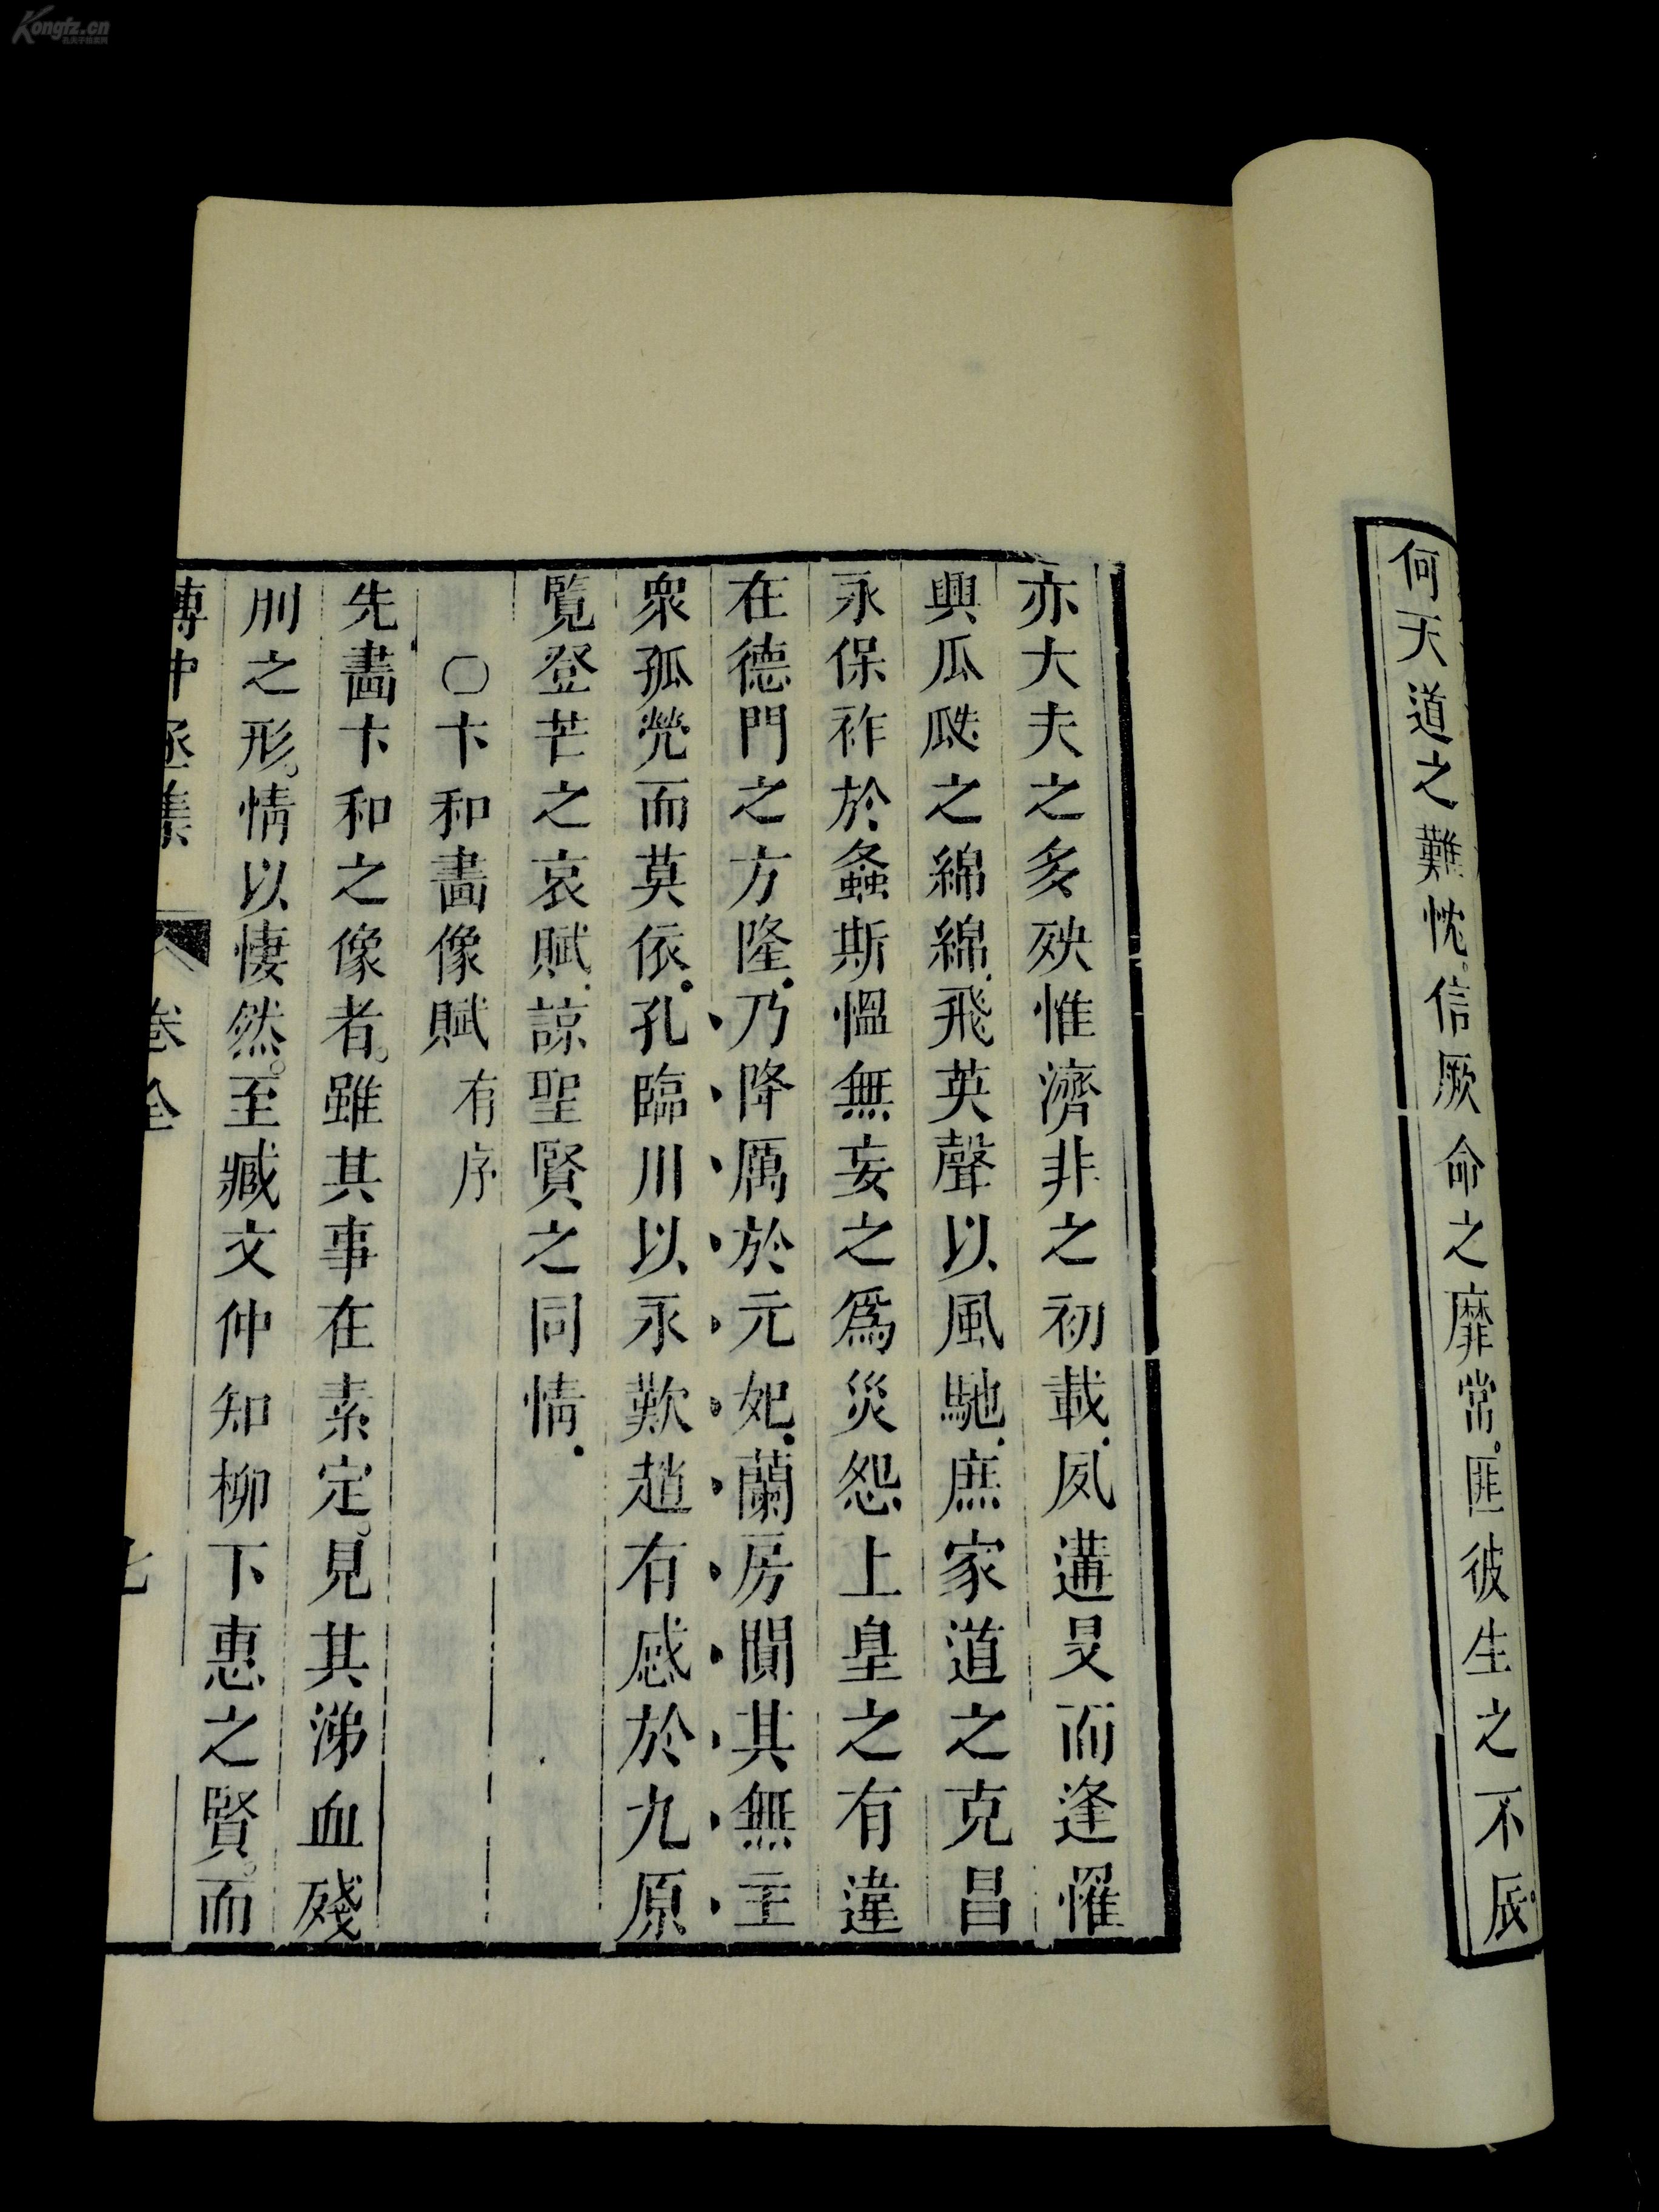 Kongfz.cn
何天道之難忱。信厥命之靡常。匪彼生之不辰。
亦大夫之多殃惟濟非之初載.夙遘旻而逢罹
興瓜瓞之綿綿.飛英聲以風馳.庶家道之克昌
永保祚於螽斯慍無妄之爲災怨上皇之有違
在德門之方隆.乃降厲於元妃.蘭房闃其無主
衆孤煢而莫依.孔臨川以永歎趙有感於九原
覽登芒之哀賦.諒聖賢之同情.
○卞和畫像賦有序
先畫卞和之像者。雖其事在素定。見其涕血殘
刖之形。情以悽然。至臧文仲知柳下惠之賢。而
傅中丞集 卷全